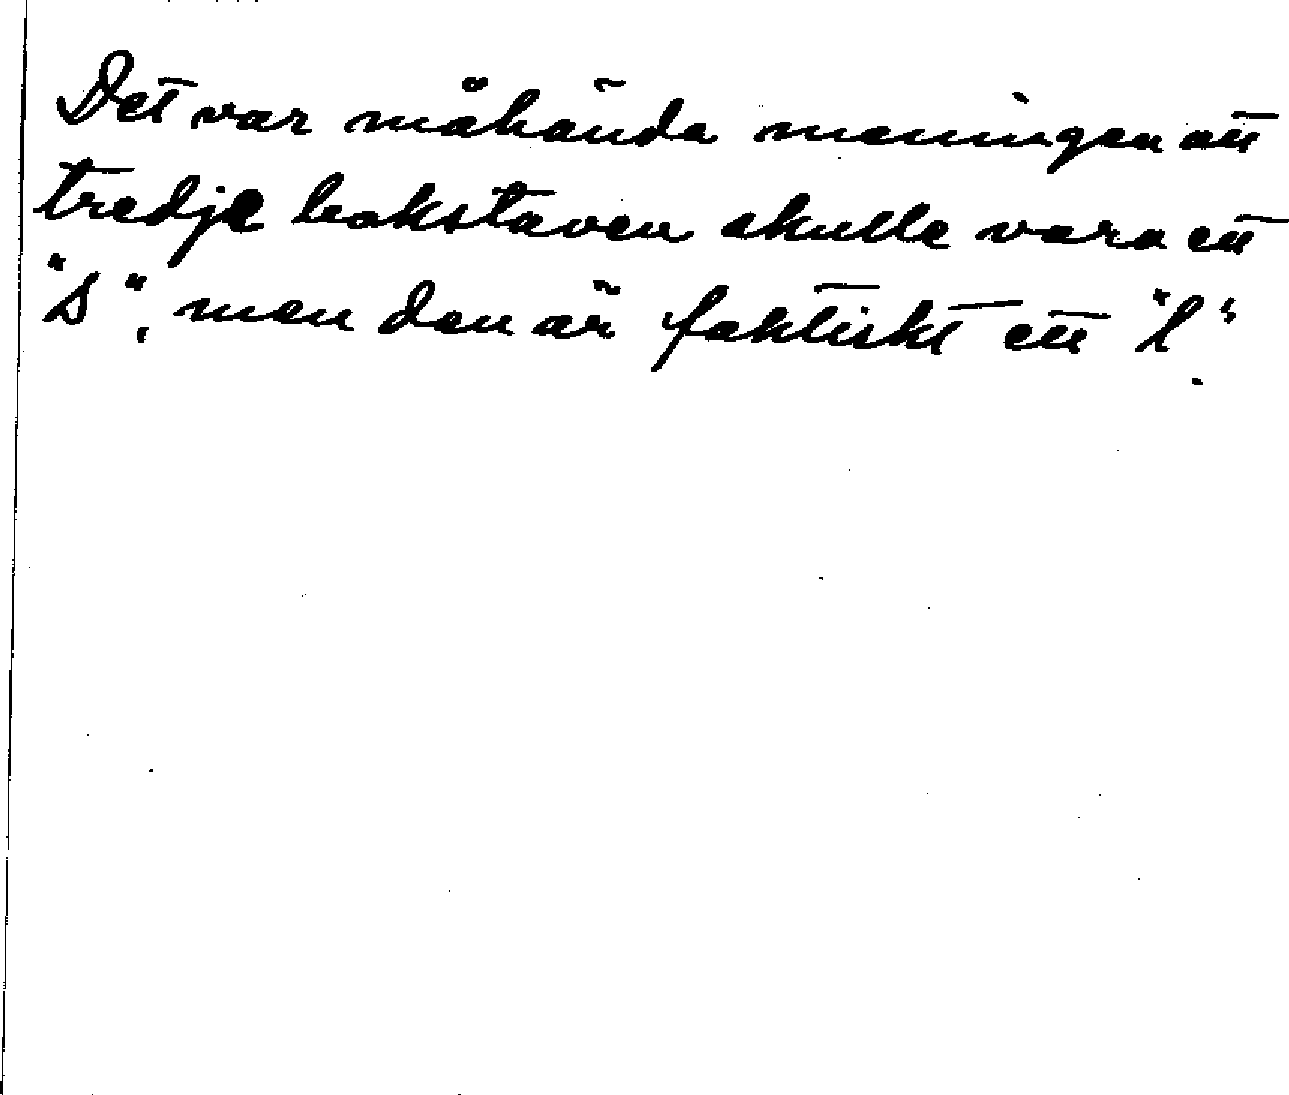 Det var måhända meningen att
tredje bokstaven skulle vara ett
"s", men den är faktiskt ett "l".